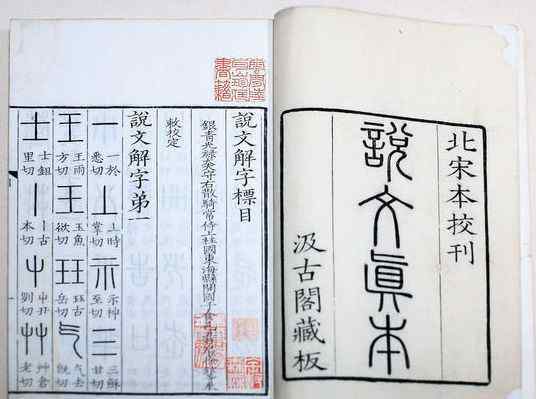 北宋本校刊
說文眞本
汲古閣藏板
說文解字標目
銀青光祿大夫守右散騎常侍上柱國東海縣開國子食邑五百戶
敕校定
說文解字弟一
一 一於悉切 上 上時掌切 示 示神至切 三 三穌甘切
王 王雨方切 玉 玉魚欲切 玨 玨古岳切 气 气去旣切
士 士鉏里切 丨 丨古本切 屮 屮丑 切 艸 艸倉老切